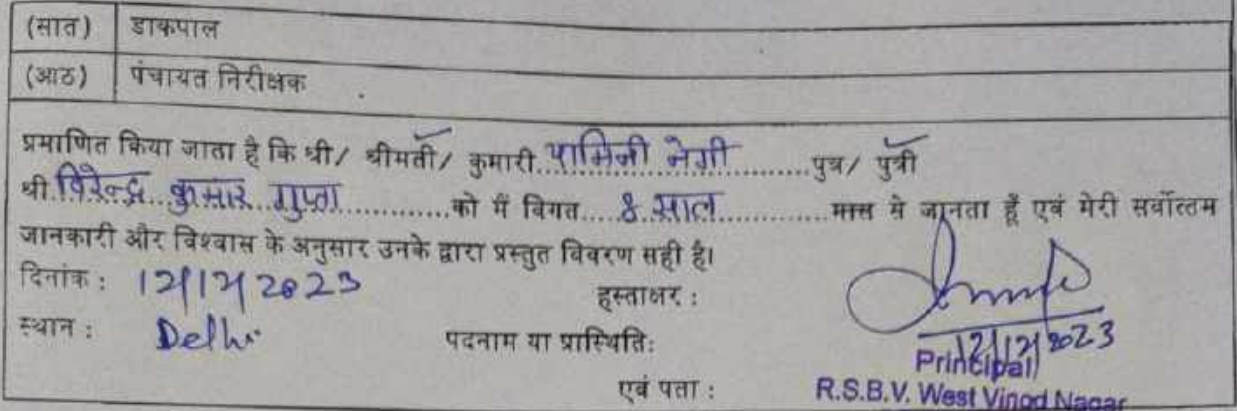 (सात) डाकपाल
(आठ) पंचायत निरीक्षक
प्रमाणित किया जाता है कि श्री/ श्रीमती/ कुमारी यामिनी नेगी पुत्र/ पुत्री
श्री विरेन्द्र कुमार गुप्ता को मैं विगत 8 साल मास से जानता हूँ एवं मेरी सर्वोत्तम
जानकारी और विश्वास के अनुसार उनके द्वारा प्रस्तुत विवरण सही है।
दिनांक : 12/12/2023 हस्ताक्षर :
स्थान : Delhi पदनाम या प्रास्थिति: 12/12/2023
Principal
एवं पता : R.S.B.V. West Vinod Nagar